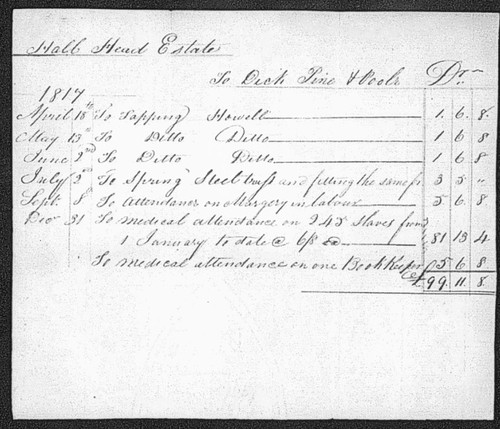 Hall Head Estate
To Dick Pine & Poole Dr
1817
April 15th To Tapping Howell 1. 6. 8.
May 13th To Ditto Ditto 1 6 8
June 2nd To Ditto Ditto 1 6 8
July 2nd To Spring Steel truss and fitting the same 3 5 "
Sept. 8 To attendance on Margery in labour 5 6. 8
Decr 31 To medical attendance on 245 Slaves from
1 January to date @ 6/8 81 13 4
To medical attendance on one Book Keeper 5 6. 8
£ 99. 11. 8.